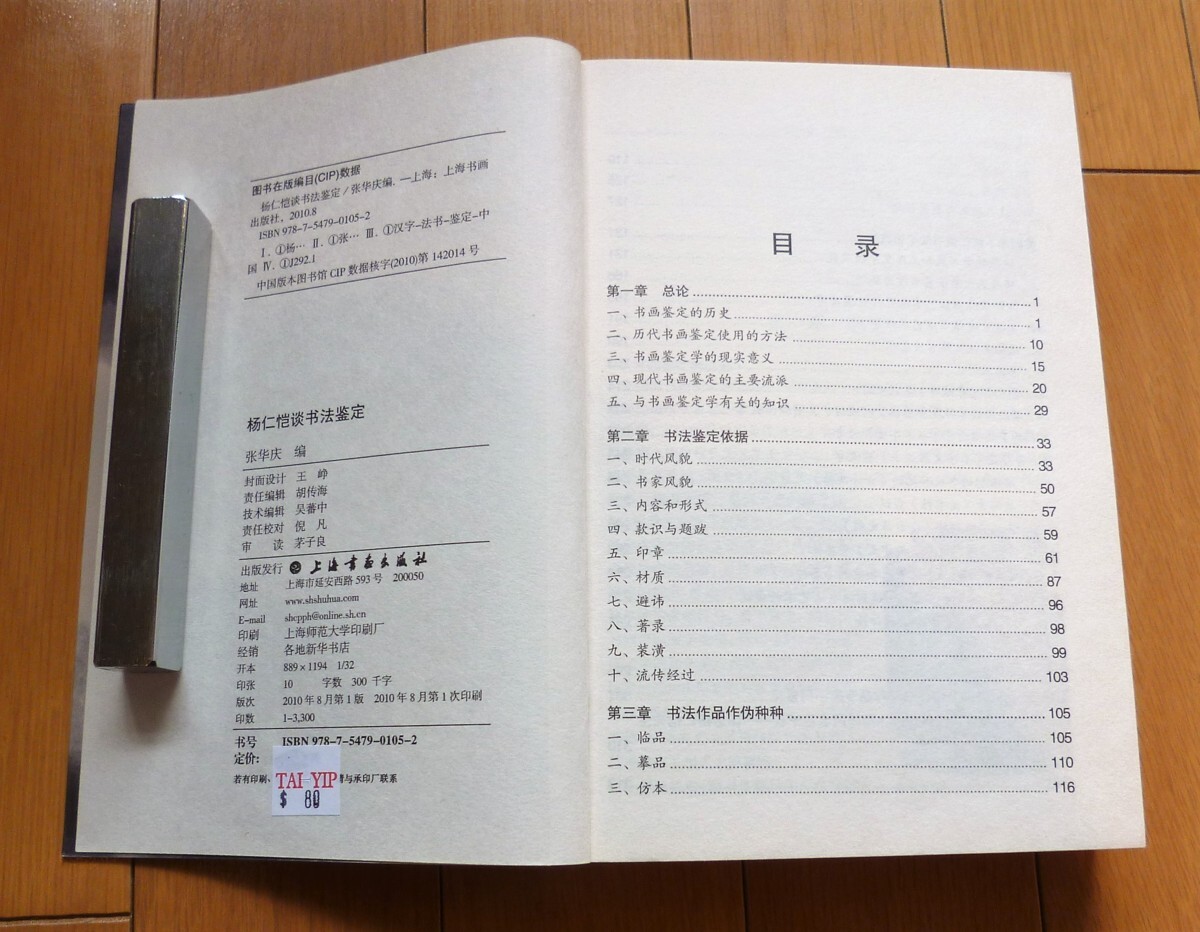 图书在版编目(CIP)数据
杨仁恺谈书法鉴定/张华庆编.—上海:上海书画
出版社,2010.8
ISBN 978-7-5479-0105-2
Ⅰ.①杨… Ⅱ.①张… Ⅲ.①汉字-法书-鉴定-中
国 Ⅳ.①J292.1
中国版本图书馆CIP数据核字(2010)第142014号
杨仁恺谈书法鉴定
张华庆 编
封面设计 王 峥
责任编辑 胡传海
技术编辑 吴蕃中
责任校对 倪 凡
审 读 茅子良
出版发行 上海书画出版社
地址 上海市延安西路593号 200050
网址 www.shshuhua.com
E-mail shcpph@online.sh.cn
印刷 上海师范大学印刷厂
经销 各地新华书店
开本 889×1194 1/32
印张 10 字数 300千字
版次 2010年8月第1版 2010年8月第1次印刷
印数 1-3,300
书号 ISBN 978-7-5479-0105-2
定价:
若有印刷、 请与承印厂联系
TAI YIP
$ 80
目 录
第一章 总论 1
一、书画鉴定的历史 1
二、历代书画鉴定使用的方法 10
三、书画鉴定学的现实意义 15
四、现代书画鉴定的主要流派 20
五、与书画鉴定学有关的知识 29
第二章 书法鉴定依据 33
一、时代风貌 33
二、书家风貌 50
三、内容和形式 57
四、款识与题跋 59
五、印章 61
六、材质 87
七、避讳 96
八、著录 98
九、装潢 99
十、流传经过 103
第三章 书法作品作伪种种 105
一、临品 105
二、摹品 110
三、仿本 116